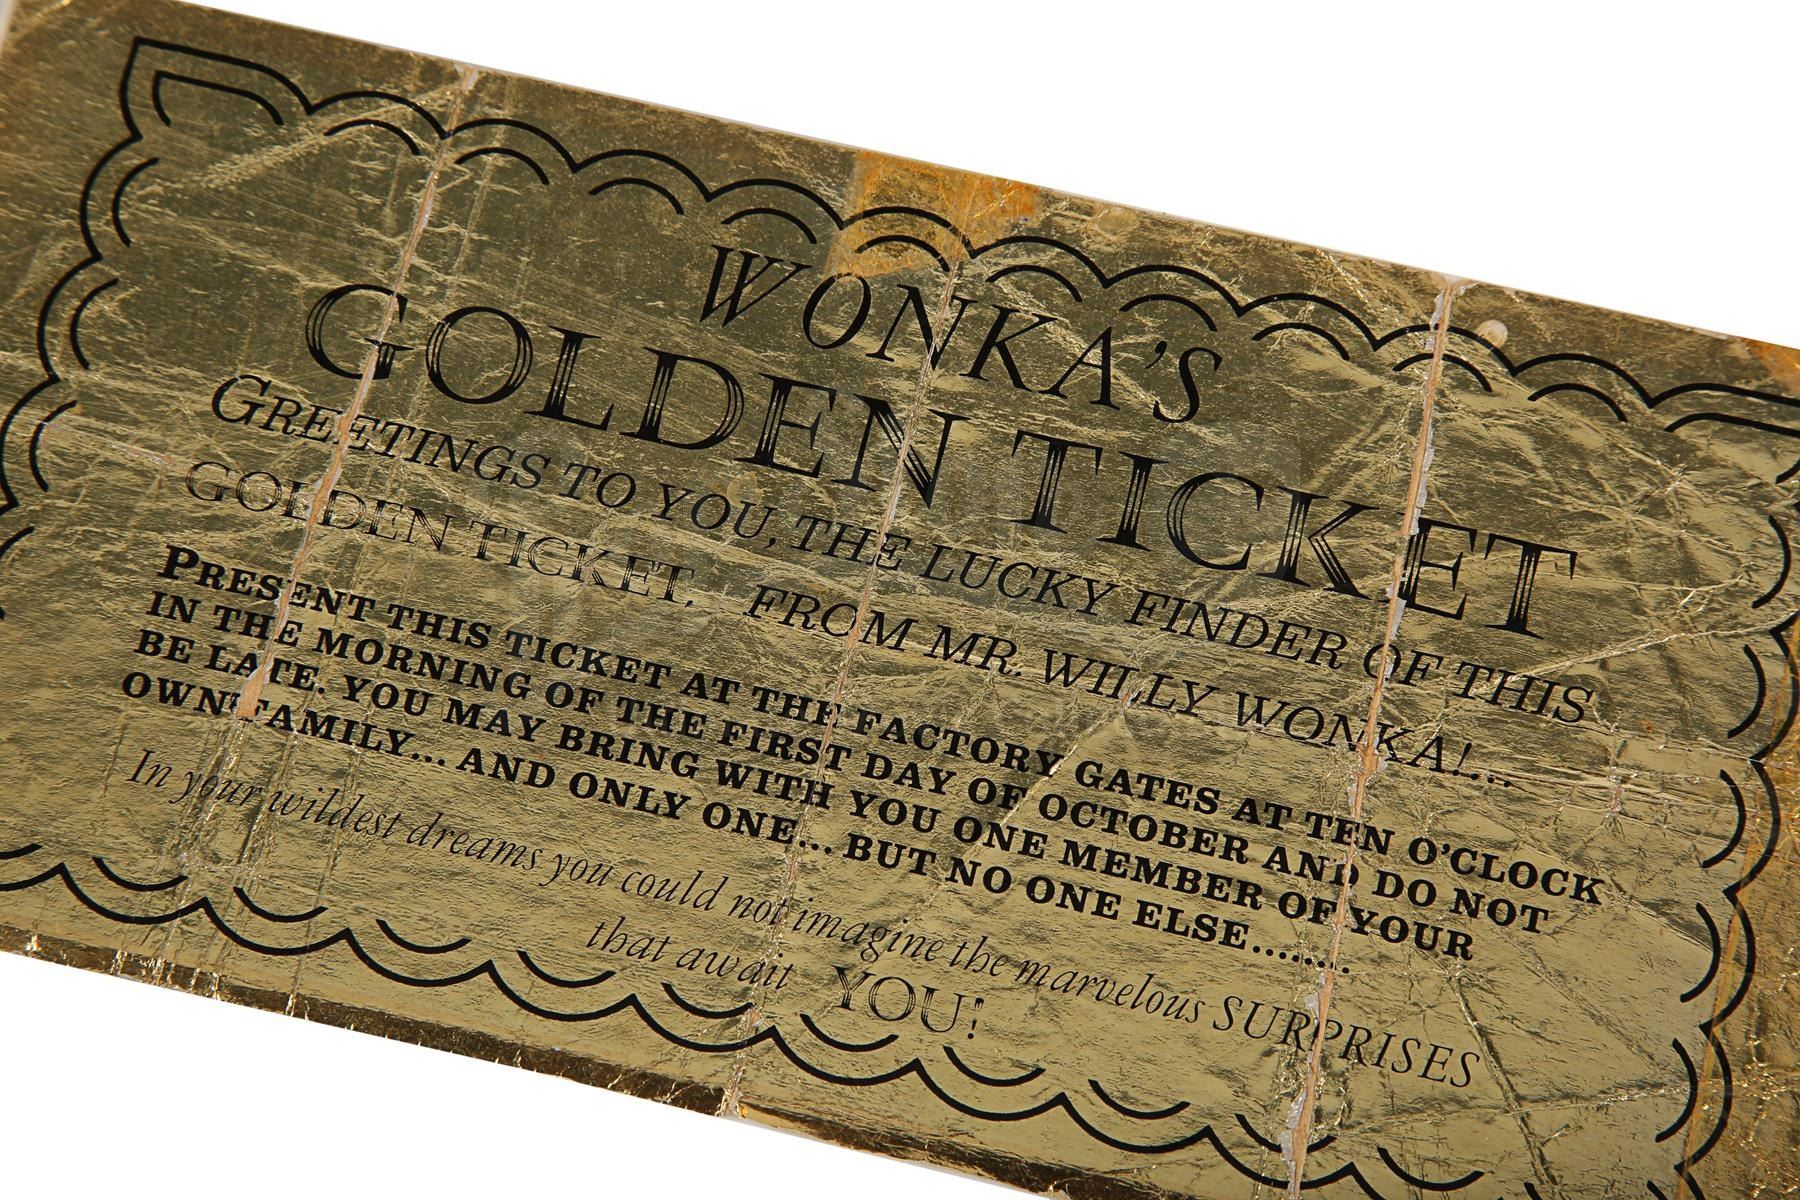 WONKA'S
GOLDEN TICKET
GREETINGS TO YOU, THE LUCKY FINDER OF THIS
GOLDEN TICKET, FROM MR. WILLY WONKA!...
PRESENT THIS TICKET AT THE FACTORY GATES AT TEN O'CLOCK
IN THE MORNING OF THE FIRST DAY OF OCTOBER AND DO NOT
BE LATE. YOU MAY BRING WITH YOU ONE MEMBER OF YOUR
OWN FAMILY... AND ONLY ONE... BUT NO ONE ELSE........
In your wildest dreams you could not imagine the marvelous SURPRISES
that await YOU!